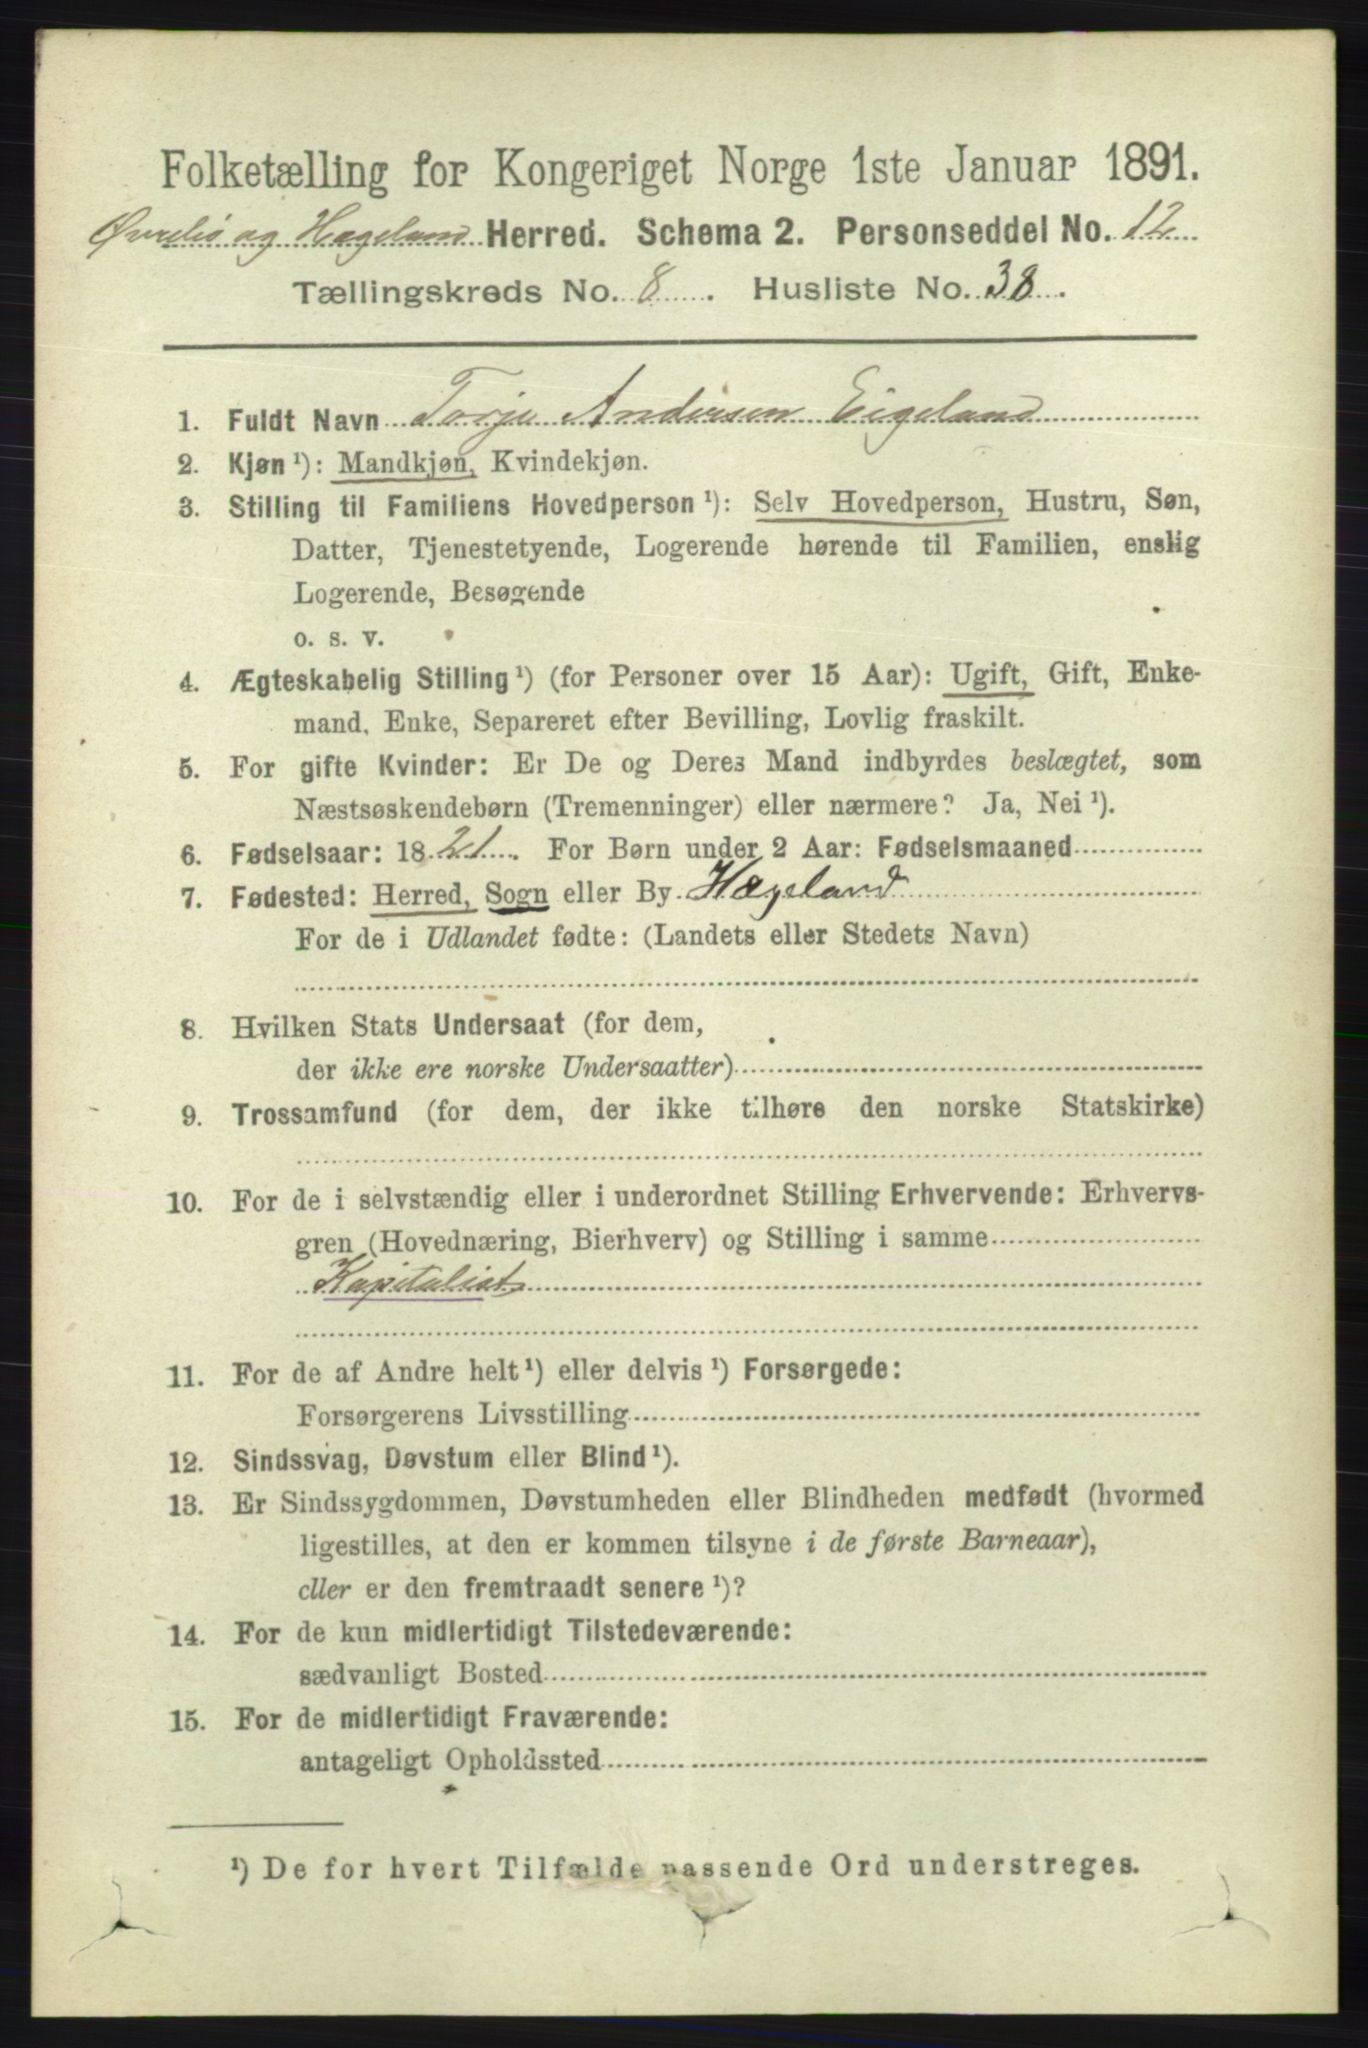 Folketælling for Kongeriget Norge 1ste Januar 1891.
Øvrebø og Hægeland Herred. Schema 2. Personseddel No. 12
Tællingskreds No. 8. Husliste No. 38.
1. Fuldt Navn Torje Andersen Eigeland
2. Kjøn ¹): Mandkjøn, Kvindekjøn.
3. Stilling til Familiens Hovedperson ¹): Selv Hovedperson, Hustru, Søn,
Datter, Tjenestetyende, Logerende hørende til Familien, enslig
Logerende, Besøgende
o. s. v.
4. Ægteskabelig Stilling ¹) (for Personer over 15 Aar): Ugift, Gift, Enke-
mand, Enke, Separeret efter Bevilling, Lovlig fraskilt.
5. For gifte Kvinder: Er De og Deres Mand indbyrdes beslægtet, som
Næstsøskendebørn (Tremenninger) eller nærmere? Ja, Nei ¹).
6. Fødselsaar: 1821. For Børn under 2 Aar: Fødselsmaaned
7. Fødested: Herred, Sogn eller By Hægeland
For de i Udlandet fødte: (Landets eller Stedets Navn)
8. Hvilken Stats Undersaat (for dem,
der ikke ere norske Undersaatter)
9. Trossamfund (for dem, der ikke tilhøre den norske Statskirke)
10. For de i selvstændig eller i underordnet Stilling Erhvervende: Erhvervs-
gren (Hovednæring, Bierhverv) og Stilling i samme
Kapitalist
11. For de af Andre helt ¹) eller delvis ¹) Forsørgede:
Forsørgerens Livsstilling
12. Sindssvag, Døvstum eller Blind ¹).
13. Er Sindssygdommen, Døvstumheden eller Blindheden medfødt (hvormed
ligestilles, at den er kommen tilsyne i de første Barneaar),
eller er den fremtraadt senere ¹)?
14. For de kun midlertidigt Tilstedeværende:
sædvanligt Bosted
15. For de midlertidigt Fraværende:
antageligt Opholdssted
¹) De for hvert Tilfælde passende Ord understreges.